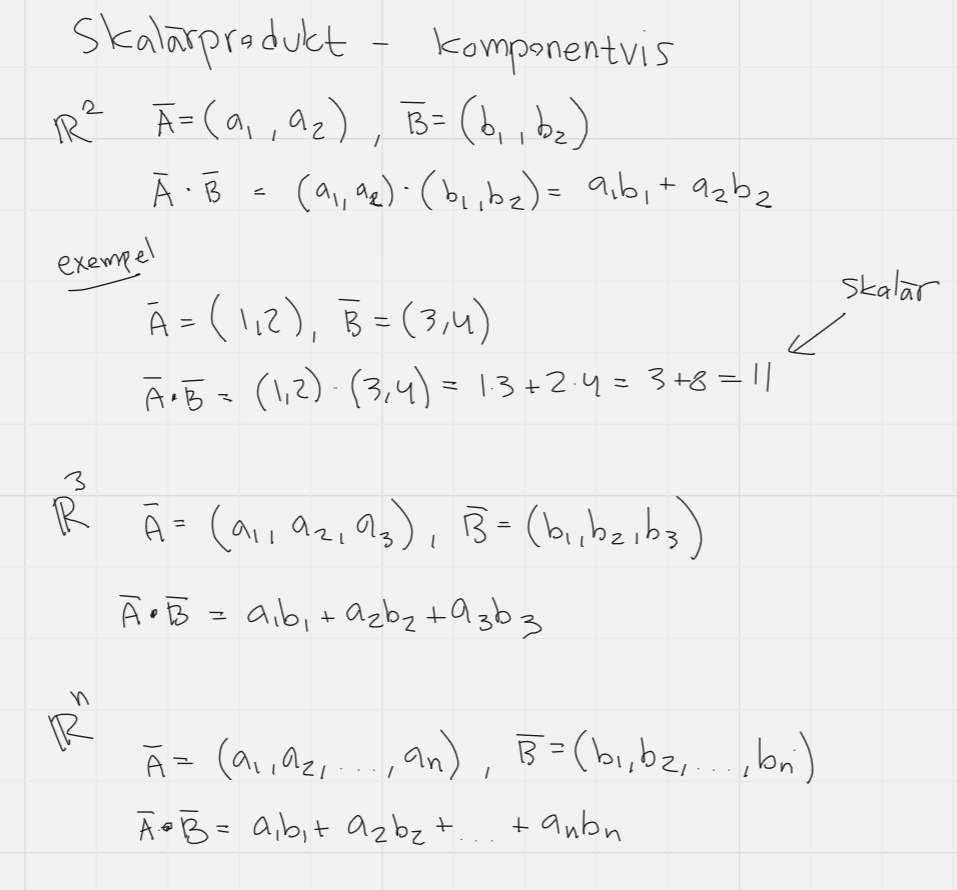 Skalärprodukt - komponentvis
ℝ² A̅ = (a₁, a₂), B̅ = (b₁, b₂)
A̅ · B̅ = (a₁, a₂) · (b₁, b₂) = a₁b₁ + a₂b₂
exempel
A̅ = (1,2), B̅ = (3,4)
skalär
A̅ · B̅ = (1,2) · (3,4) = 1·3 + 2·4 = 3+8 = 11
ℝ³ A̅ = (a₁, a₂, a₃), B̅ = (b₁, b₂, b₃)
A̅ · B̅ = a₁b₁ + a₂b₂ + a₃b₃
ℝⁿ
A̅ = (a₁, a₂, ..., aₙ), B̅ = (b₁, b₂, ..., bₙ)
A̅ · B̅ = a₁b₁ + a₂b₂ + ... + aₙbₙ